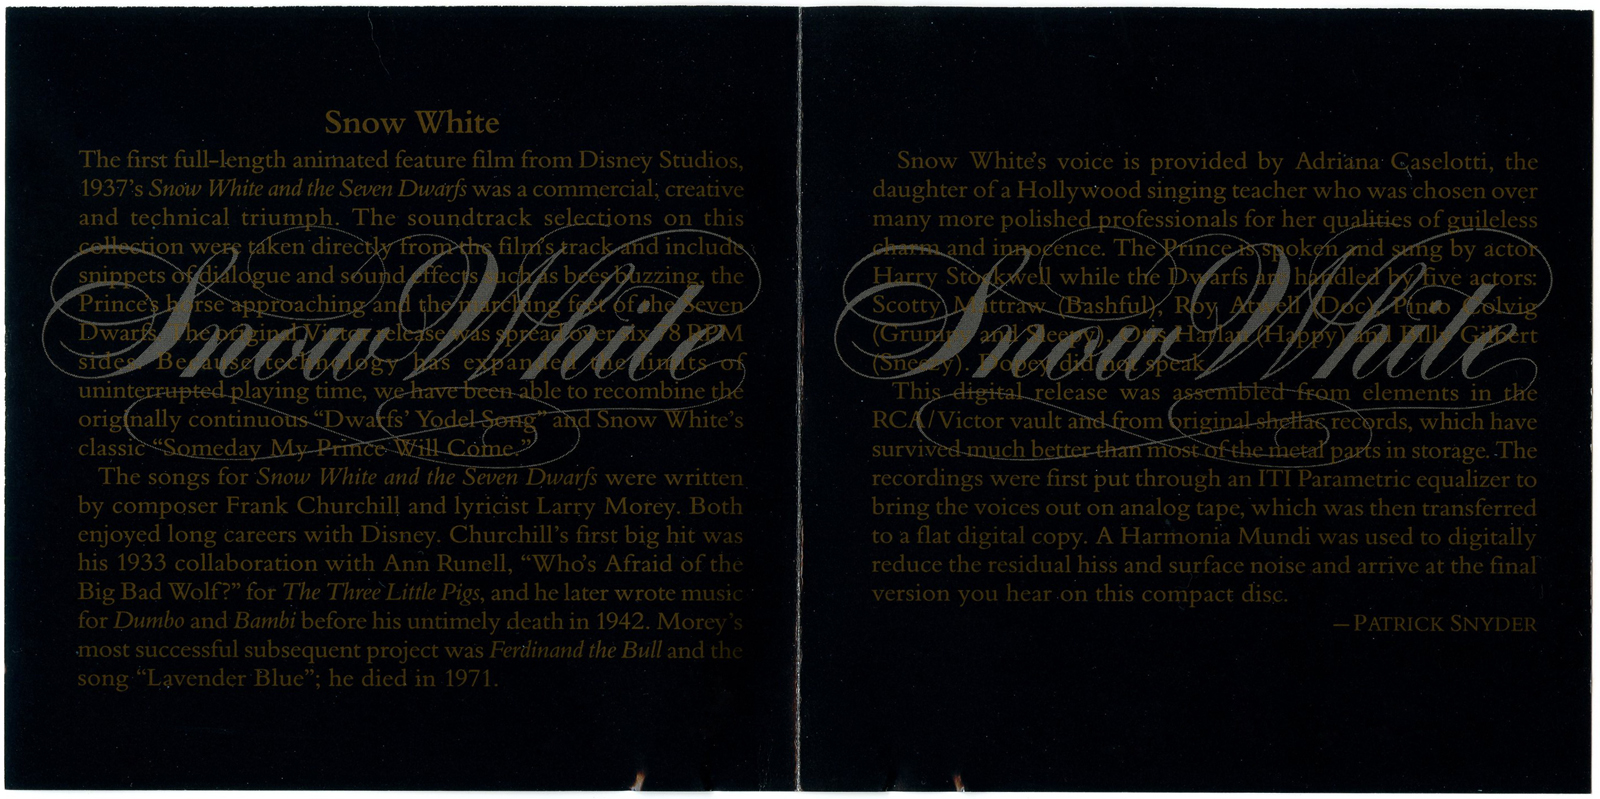 Snow White
The first full-length animated feature film from Disney Studios,
1937's Snow White and the Seven Dwarfs was a commercial, creative
and technical triumph. The soundtrack selections on this
collection were taken directly from the film's track and include
snippets of dialogue and sound effects such as bees buzzing, the
Prince's horse approaching and the marching feet of the Seven
Dwarfs. The original Victor release was spread over six 78 RPM
sides. Because technology has expanded the limits of
uninterrupted playing time, we have been able to recombine the
originally continuous “Dwarfs' Yodel Song” and Snow White's
classic “Someday My Prince Will Come.”
The songs for Snow White and the Seven Dwarfs were written
by composer Frank Churchill and lyricist Larry Morey. Both
enjoyed long careers with Disney. Churchill's first big hit was
his 1933 collaboration with Ann Runell, “Who's Afraid of the
Big Bad Wolf?” for The Three Little Pigs, and he later wrote music
for Dumbo and Bambi before his untimely death in 1942. Morey's
most successful subsequent project was Ferdinand the Bull and the
song “Lavender Blue”; he died in 1971.
Snow White
Snow White's voice is provided by Adriana Caselotti, the
daughter of a Hollywood singing teacher who was chosen over
many more polished professionals for her qualities of guileless
charm and innocence. The Prince is spoken and sung by actor
Harry Stockwell while the Dwarfs are handled by five actors:
Scotty Mattraw (Bashful), Roy Atwell (Doc), Pinto Colvig
(Grumpy and Sleepy), Otis Harlan (Happy) and Billy Gilbert
(Sneezy). Dopey did not speak.
This digital release was assembled from elements in the
RCA/Victor vault and from original shellac records, which have
survived much better than most of the metal parts in storage. The
recordings were first put through an ITI Parametric equalizer to
bring the voices out on analog tape, which was then transferred
to a flat digital copy. A Harmonia Mundi was used to digitally
reduce the residual hiss and surface noise and arrive at the final
version you hear on this compact disc.
—PATRICK SNYDER
Snow White